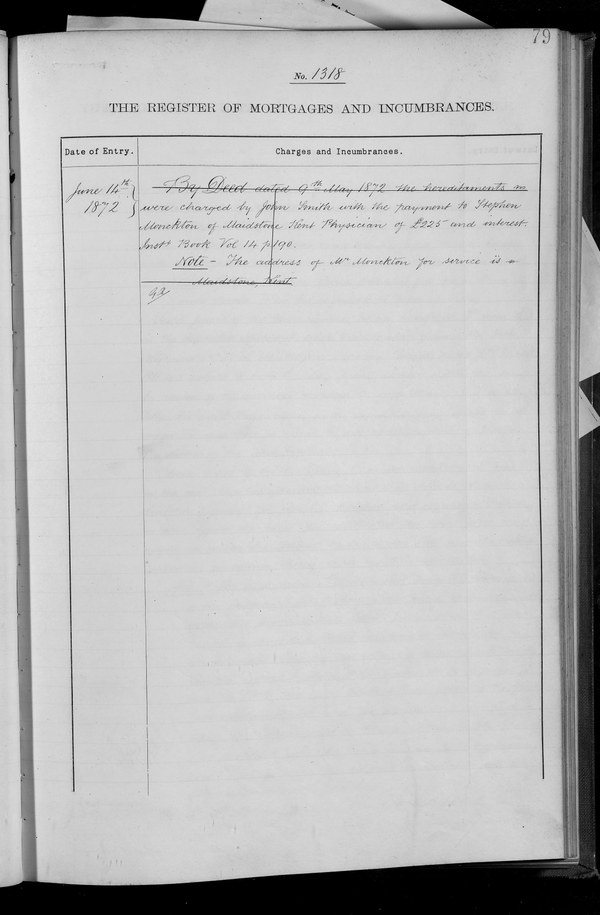 79
No. 1318
THE REGISTER OF MORTGAGES AND INCUMBRANCES.
Date of Entry.
Charges and Incumbrances.
June 14th
1872
By Deed dated 9th May 1872 the hereditaments in
were charged by John Smith with the payment to Stephen
Monckton of Maidstone Kent Physician of £225 and interest.
Inst. Book Vol 14 p. 190.
Note - The address of Mr Monckton for service is
Maidstone, Kent